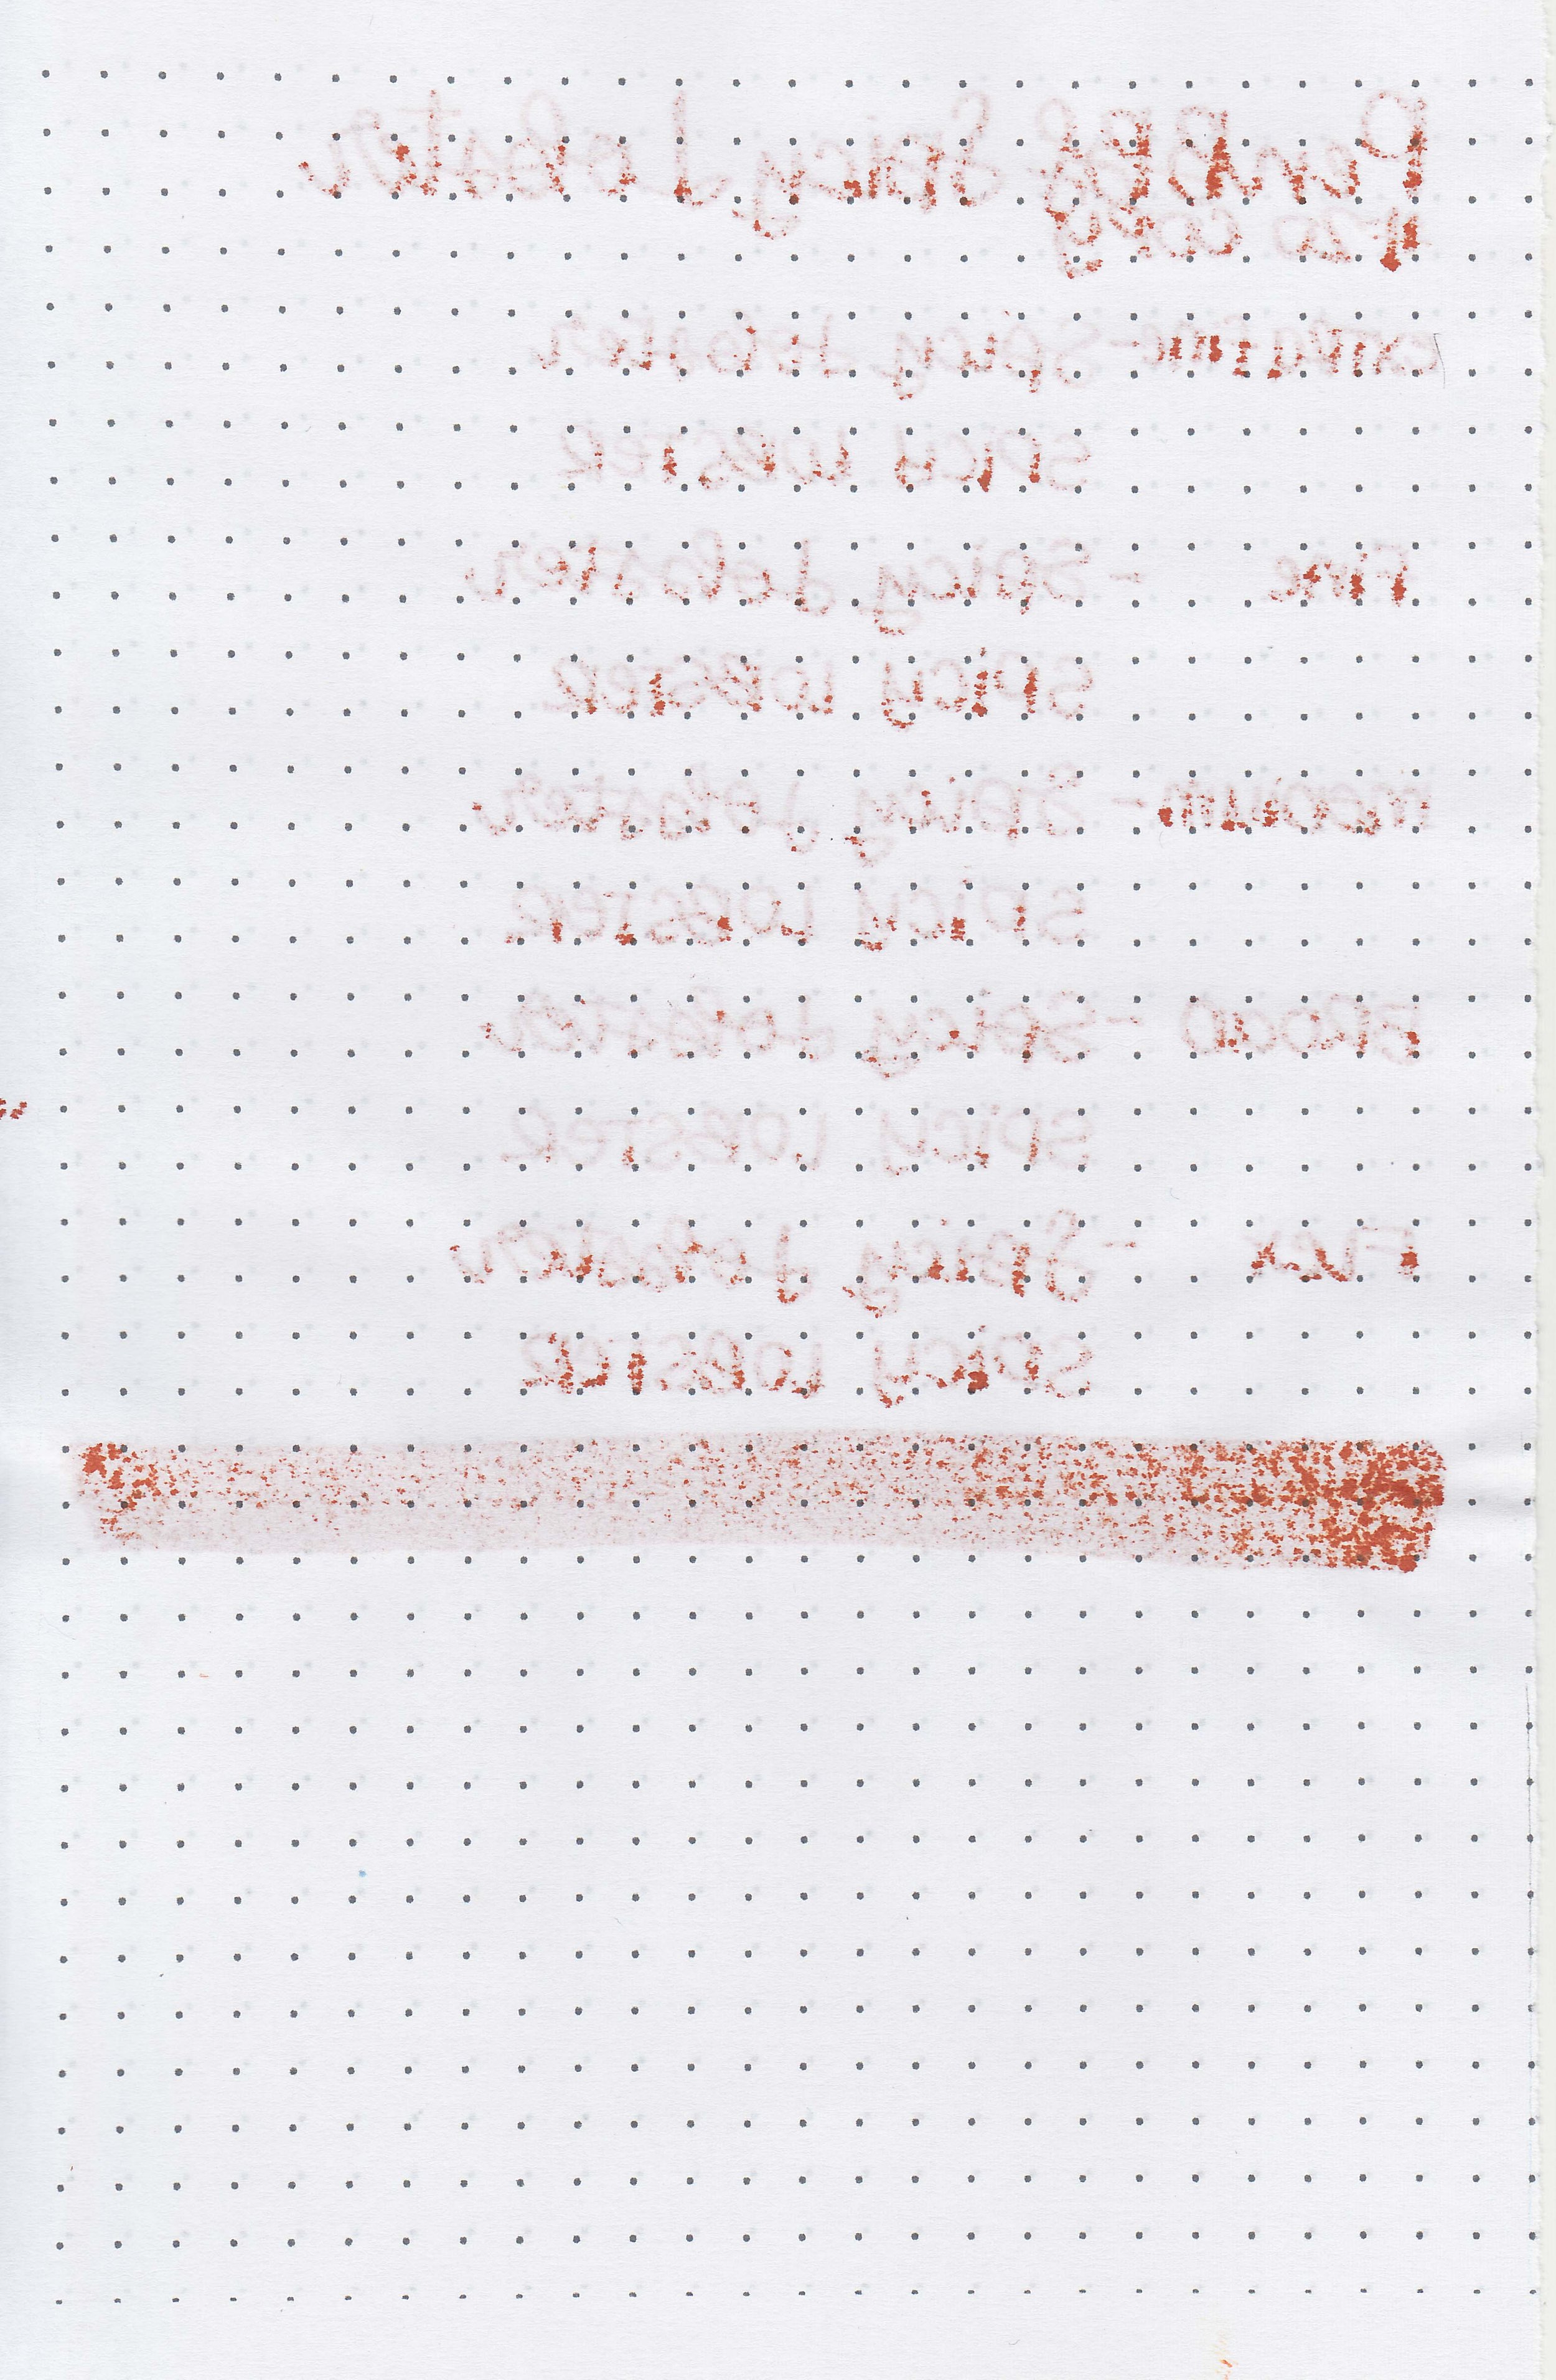 PenBBS Spicy Lobster
copy
extra fine - Spicy Lobster
SPICY LOBSTER
Fine - Spicy Lobster
SPICY LOBSTER
medium - Spicy Lobster
SPICY LOBSTER
BROAD - Spicy Lobster
SPICY LOBSTER
Flex - Spicy Lobster
SPICY LOBSTER